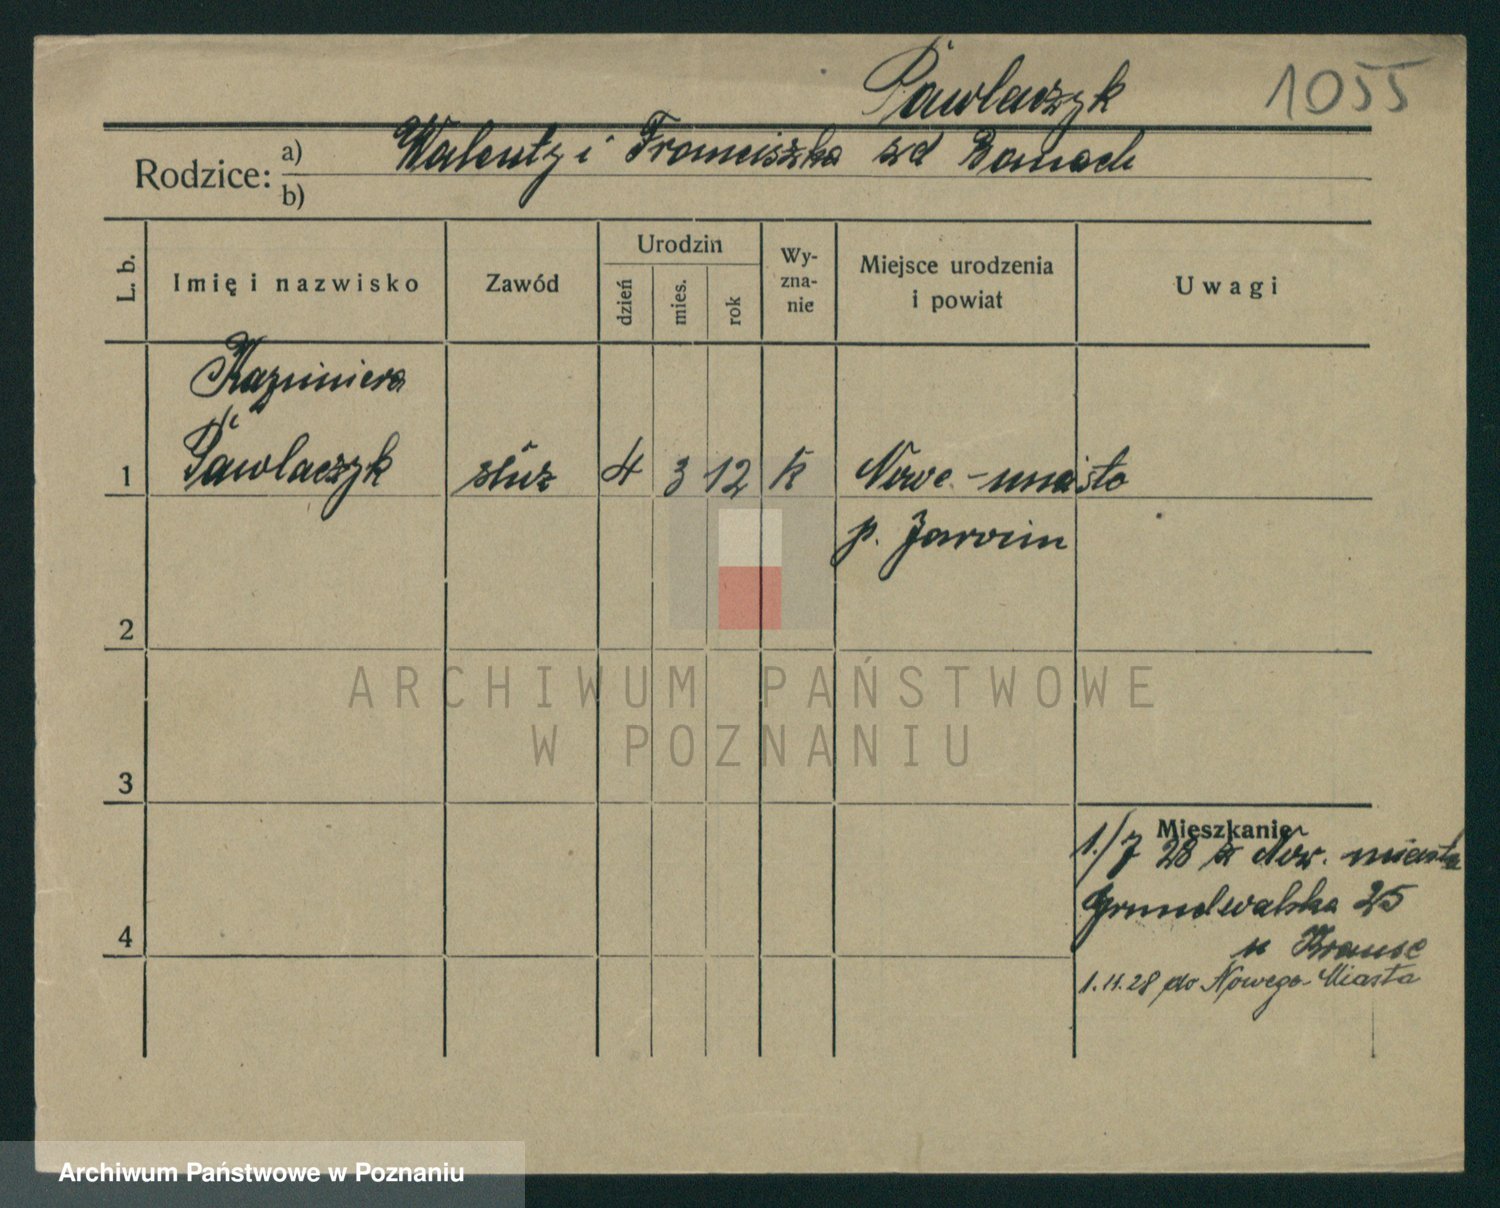 Pawlaczyk 1055
Rodzice: a) Walenty i Franciszka zd Banach
b)
L. b. Imię i nazwisko Zawód Urodzin Wyzna- Miejsce urodzenia Uwagi
dzień mies. rok nie i powiat
Kazimiera
1 Pawlaczyk służ 4 3 12 k Nowe-miasto
p. Jarocin
2
ARCHIWUM PAŃSTWOWE
W POZNANIU
3
Mieszkanie
1./7 28 z Now. miasta
Grunwalska 25
4
u Krause
1.11.28 do Nowego-Miasta
Archiwum Państwowe w Poznaniu